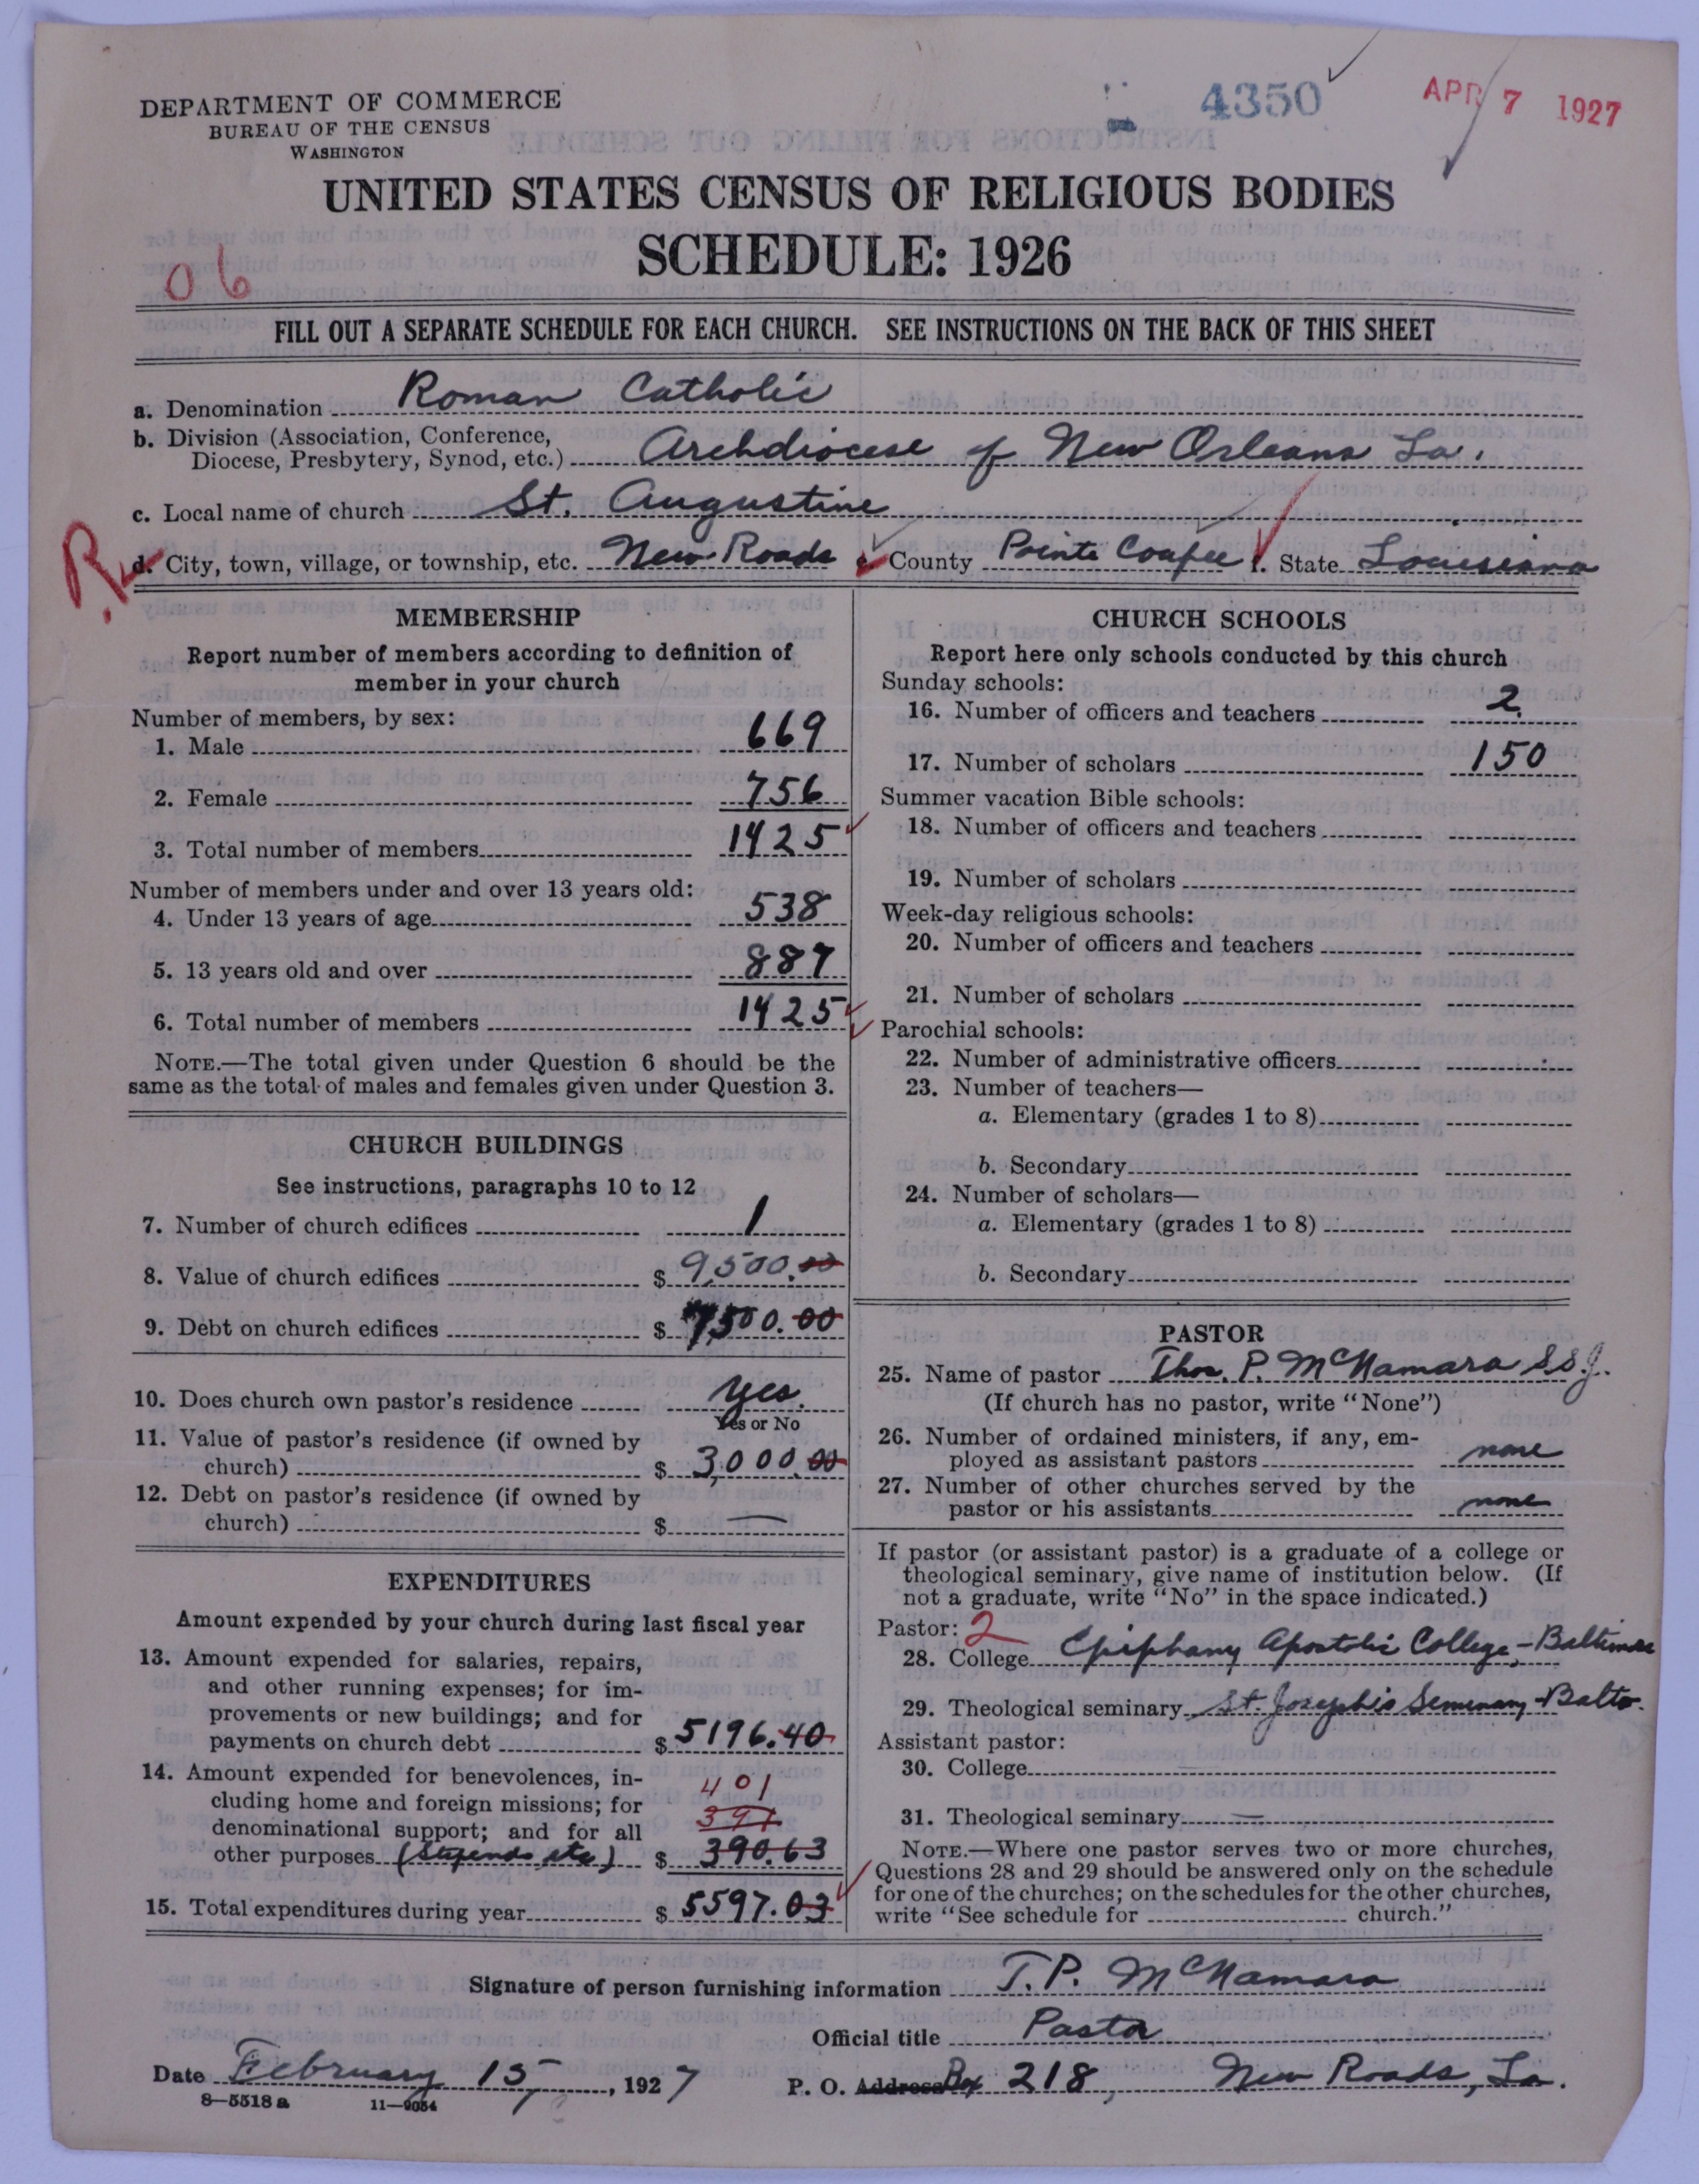 4350
APR 7 1927
DEPARTMENT OF COMMERCE
BUREAU OF THE CENSUS
WASHINGTON
UNITED STATES CENSUS OF RELIGIOUS BODIES
SCHEDULE: 1926
06
FILL OUT A SEPARATE SCHEDULE FOR EACH CHURCH. SEE INSTRUCTIONS ON THE BACK OF THIS SHEET
a. Denomination Roman Catholic
b. Division (Association, Conference,
Diocese, Presbytery, Synod, etc.) Archdiocese of New Orleans La.
c. Local name of church St. Augustine
R.
d. City, town, village, or township, etc. New Roads e. County Pointe Coupee f. State Louisiana
MEMBERSHIP
Report number of members according to definition of
member in your church
Number of members, by sex:
1. Male 669
2. Female 756
3. Total number of members 1425
Number of members under and over 13 years old:
4. Under 13 years of age 538
5. 13 years old and over 887
6. Total number of members 1425
NOTE.—The total given under Question 6 should be the
same as the total of males and females given under Question 3.
CHURCH BUILDINGS
See instructions, paragraphs 10 to 12
7. Number of church edifices 1
8. Value of church edifices $ 9,500.00
9. Debt on church edifices $ 7,500.00
10. Does church own pastor's residence yes.
Yes or No
11. Value of pastor's residence (if owned by
church) $ 3,000.00
12. Debt on pastor's residence (if owned by
church) $ —
EXPENDITURES
Amount expended by your church during last fiscal year
13. Amount expended for salaries, repairs,
and other running expenses; for im-
provements or new buildings; and for
payments on church debt $ 5196.40
14. Amount expended for benevolences, in-
cluding home and foreign missions; for
denominational support; and for all
other purposes (Stipends etc) $ 390.63
401
391
15. Total expenditures during year $ 5597.03
CHURCH SCHOOLS
Report here only schools conducted by this church
Sunday schools:
16. Number of officers and teachers 2
17. Number of scholars 150
Summer vacation Bible schools:
18. Number of officers and teachers
19. Number of scholars
Week-day religious schools:
20. Number of officers and teachers
21. Number of scholars
Parochial schools:
22. Number of administrative officers
23. Number of teachers—
a. Elementary (grades 1 to 8)
b. Secondary
24. Number of scholars—
a. Elementary (grades 1 to 8)
b. Secondary
PASTOR
25. Name of pastor Thos. P. McNamara S.S.J.
(If church has no pastor, write "None")
26. Number of ordained ministers, if any, em-
ployed as assistant pastors none
27. Number of other churches served by the
pastor or his assistants none
If pastor (or assistant pastor) is a graduate of a college or
theological seminary, give name of institution below. (If
not a graduate, write "No" in the space indicated.)
Pastor: 2
28. College Epiphany Apostolic College,—Baltimore
29. Theological seminary St. Joseph's Seminary—Balto.
Assistant pastor:
30. College
31. Theological seminary
NOTE.—Where one pastor serves two or more churches,
Questions 28 and 29 should be answered only on the schedule
for one of the churches; on the schedules for the other churches,
write "See schedule for church."
Signature of person furnishing information T. P. McNamara
Official title Pastor
Date February 15, 1927 P. O. Address Box 218, New Roads, La.
8—5518 a 11—9054